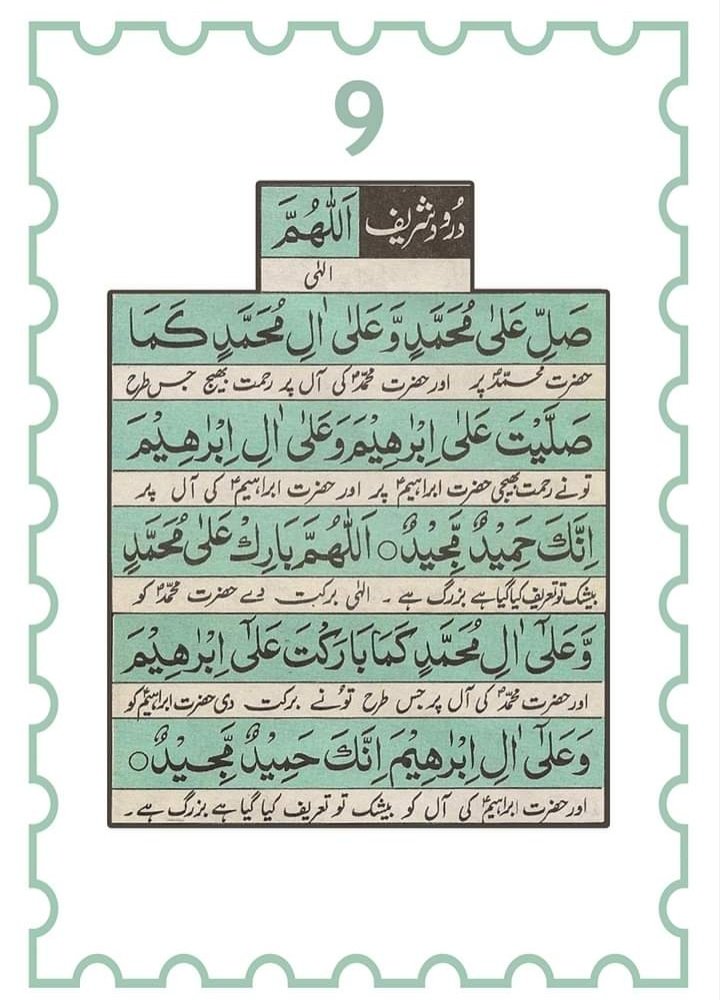 9
درود شریف اَللّٰهُمَّ
الہٰی
صَلِّ عَلٰى مُحَمَّدٍ وَّعَلٰٓى اٰلِ مُحَمَّدٍ كَمَا
حضرت محمدؐ پر اور حضرت محمدؐ کی آل پر رحمت بھیج جس طرح
صَلَّيْتَ عَلٰٓى اِبْرٰهِيْمَ وَعَلٰٓى اٰلِ اِبْرٰهِيْمَ
تونے رحمت بھیجی حضرت ابراہیمؑ پر اور حضرت ابراہیمؑ کی آل پر
اِنَّكَ حَمِيْدٌ مَّجِيْدٌ ○ اَللّٰهُمَّ بَارِكْ عَلٰى مُحَمَّدٍ
بیشک تو تعریف کیا گیا ہے بزرگ ہے ۔ الہٰی برکت دے حضرت محمدؐ کو
وَّعَلٰٓى اٰلِ مُحَمَّدٍ كَمَا بَارَكْتَ عَلٰٓى اِبْرٰهِيْمَ
اور حضرت محمدؐ کی آل پر جس طرح تونے برکت دی حضرت ابراہیمؑ کو
وَعَلٰٓى اٰلِ اِبْرٰهِيْمَ اِنَّكَ حَمِيْدٌ مَّجِيْدٌ ○
اور حضرت ابراہیمؑ کی آل کو بیشک تو تعریف کیا گیا ہے بزرگ ہے ۔